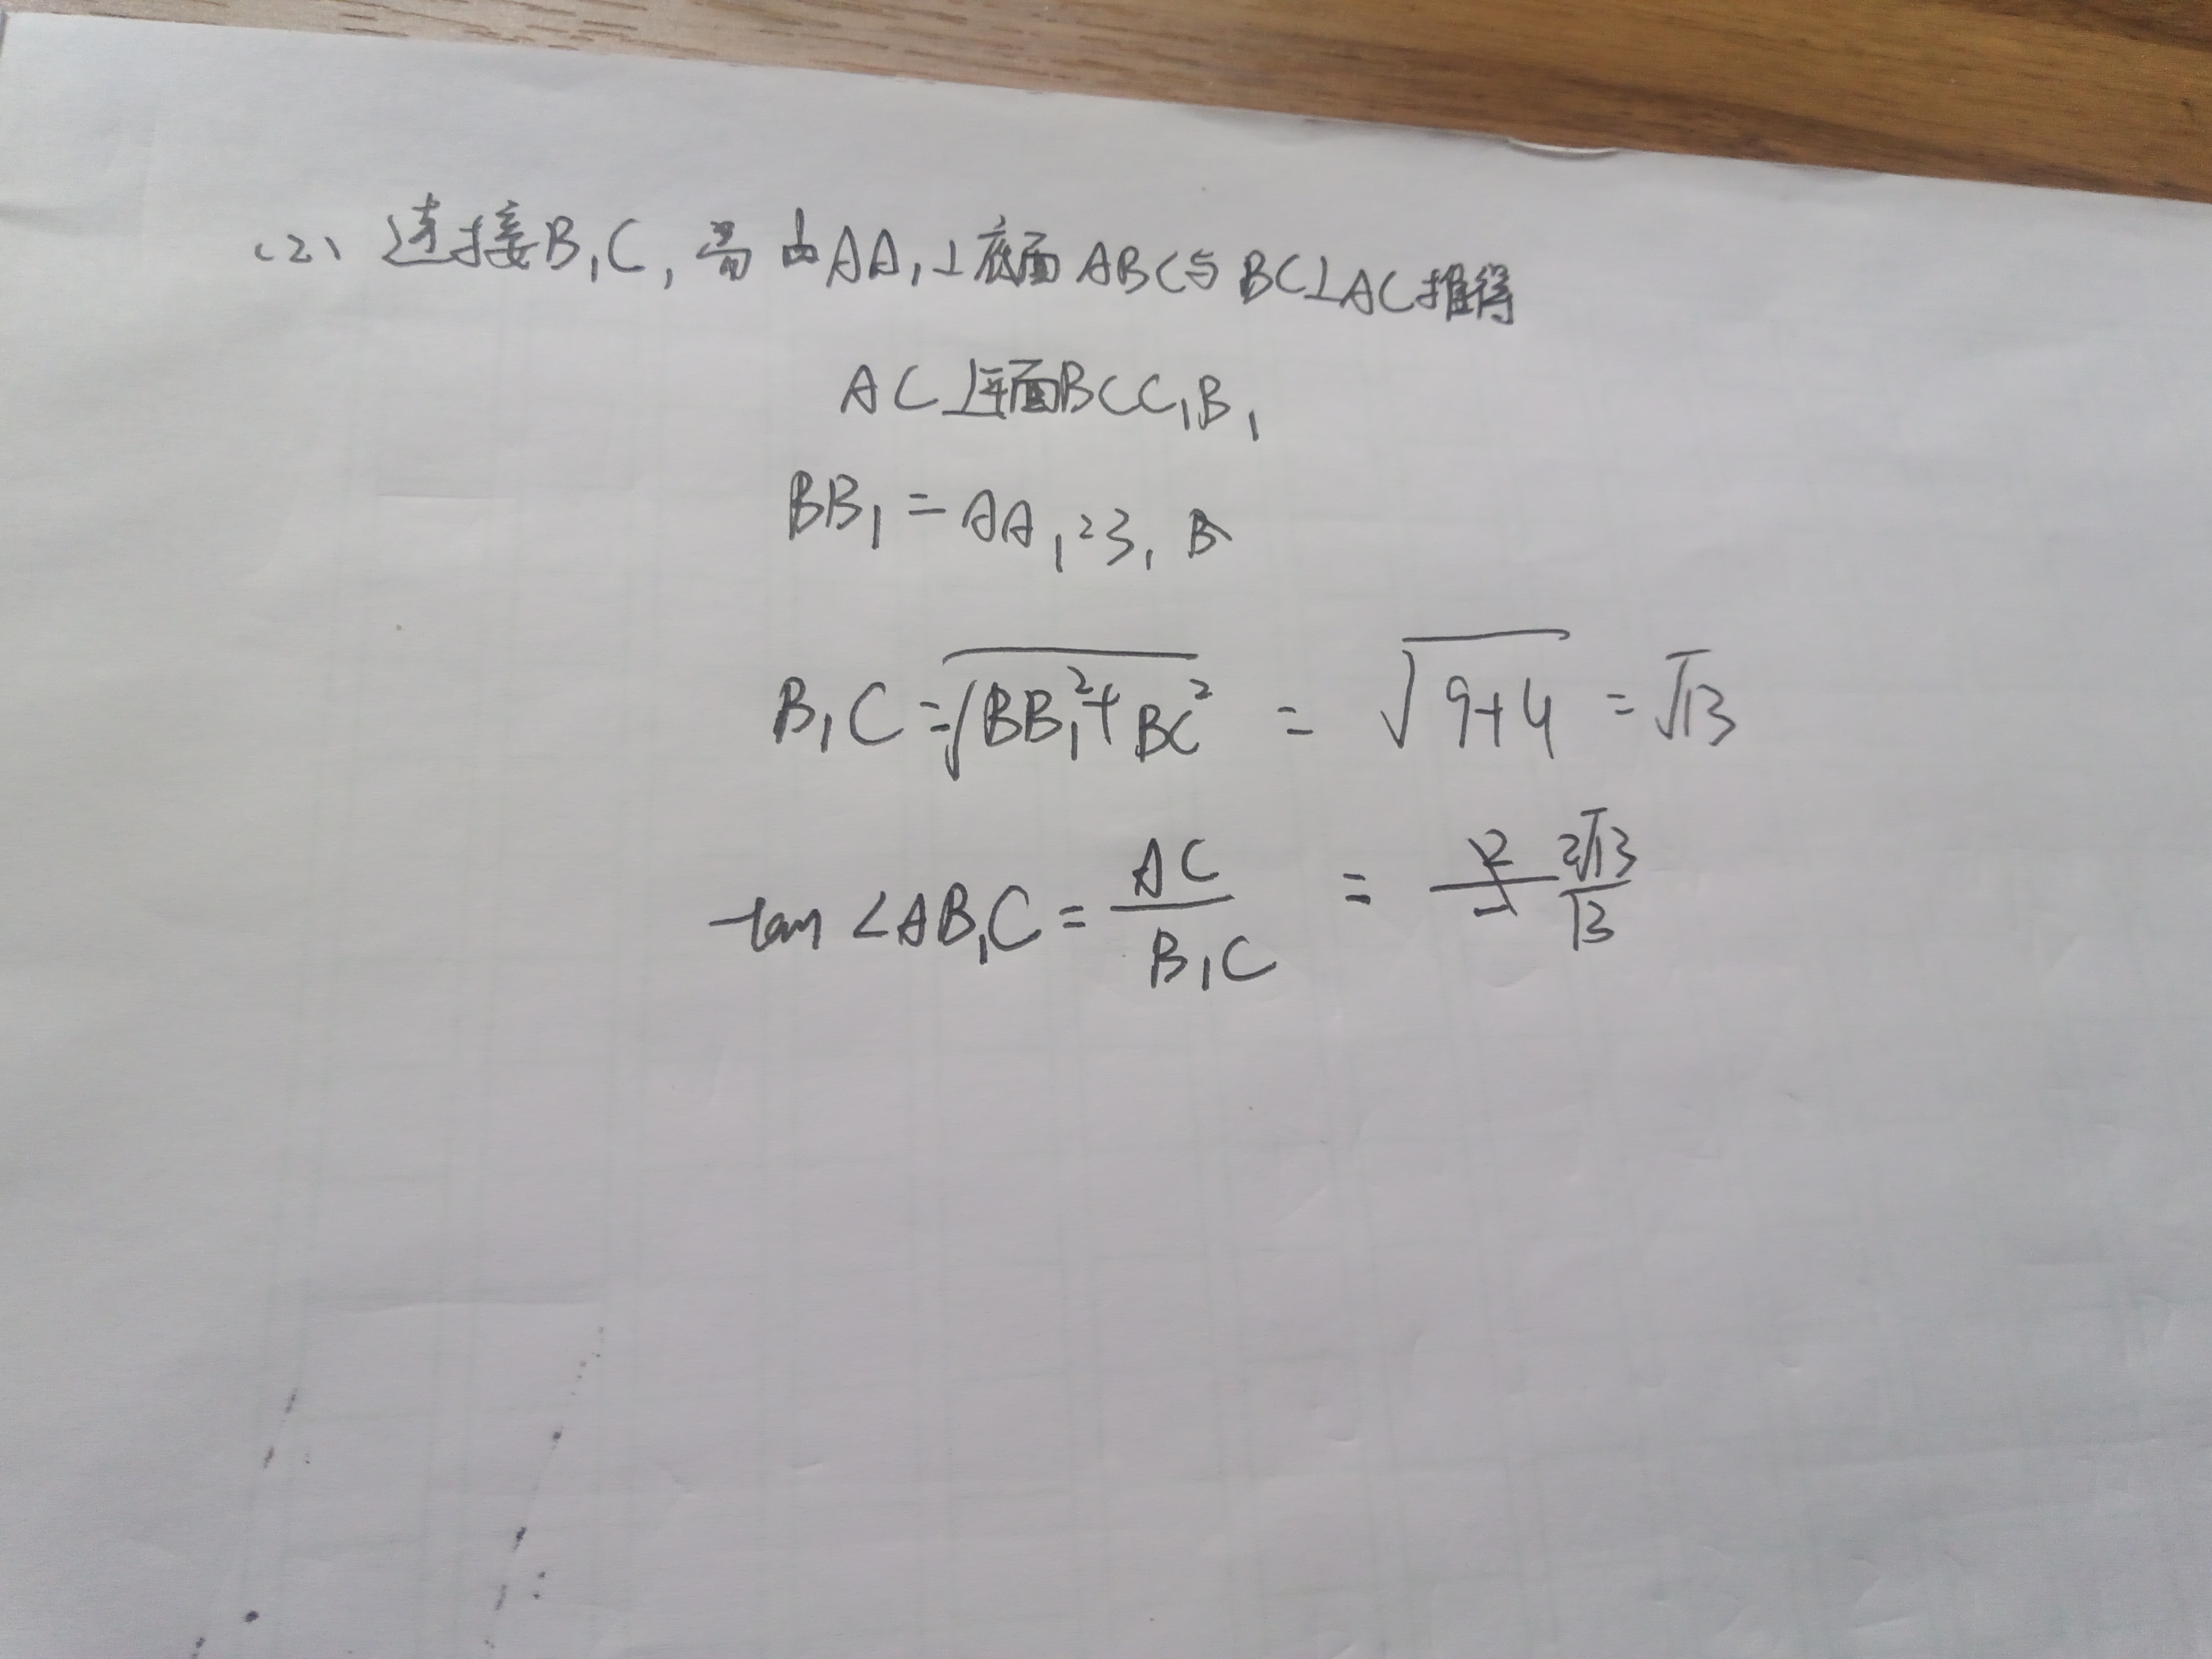 (2)、连接B₁C, 由AA₁⊥底面ABC与BC⊥AC推得
AC⊥平面BCC₁B₁
BB₁=AA₁=3, B
B₁C=√(BB₁²+BC²) = √(9+4) = √13
tan∠AB₁C = AC/B₁C = 2√13/13